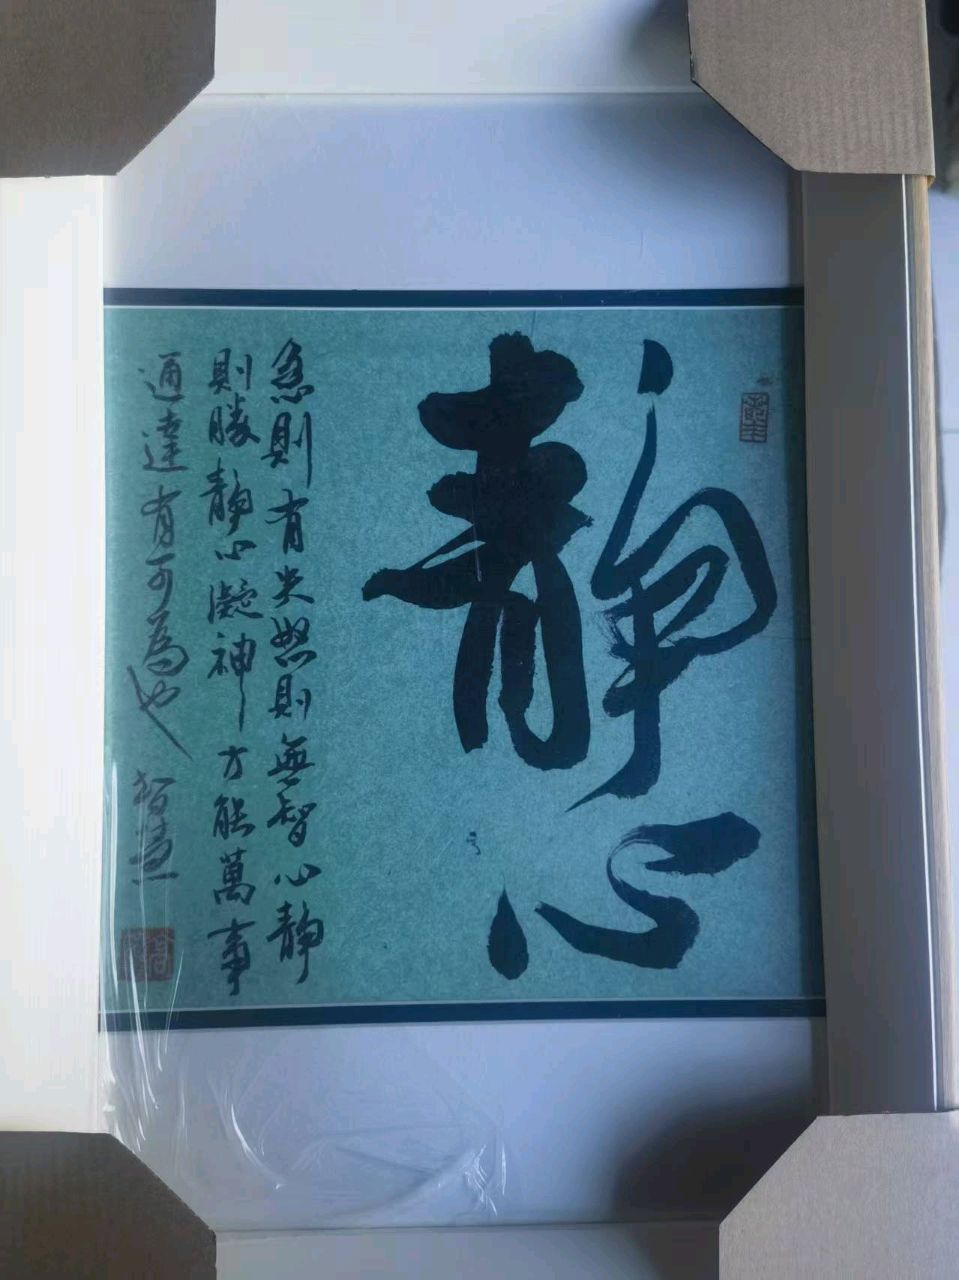 静心
急則有失怒則無智心靜
則勝靜心凝神方能萬事
通達有可為也
智慧